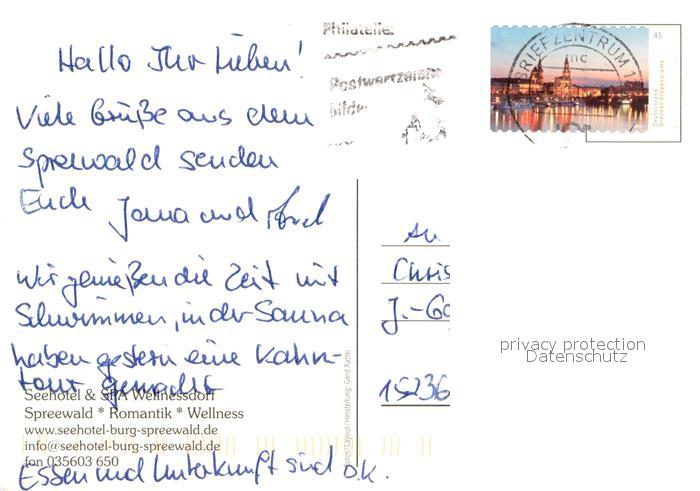 Philatelie
Postwertzeichen
bilde
BRIEFZENTRUM 1
45
Deutschland
Dresden Elbpanorama
Hallo Ihr Lieben!
Viele Grüße aus dem
Spreewald senden
Euch Jana und
Wir genießen die Zeit mit
Schwimmen, in der Sauna
haben gestern eine Kahn-
tour gemacht
Seehotel & SPA Wellnessdorf
Spreewald * Romantik * Wellness
www.seehotel-burg-spreewald.de
info@seehotel-burg-spreewald.de
fon 035603 650
Essen und Unterkunft sind o.k.
Layout / Herstellung: Gerd Rattei
An
Chris
J.-Go
15236
privacy protection
Datenschutz